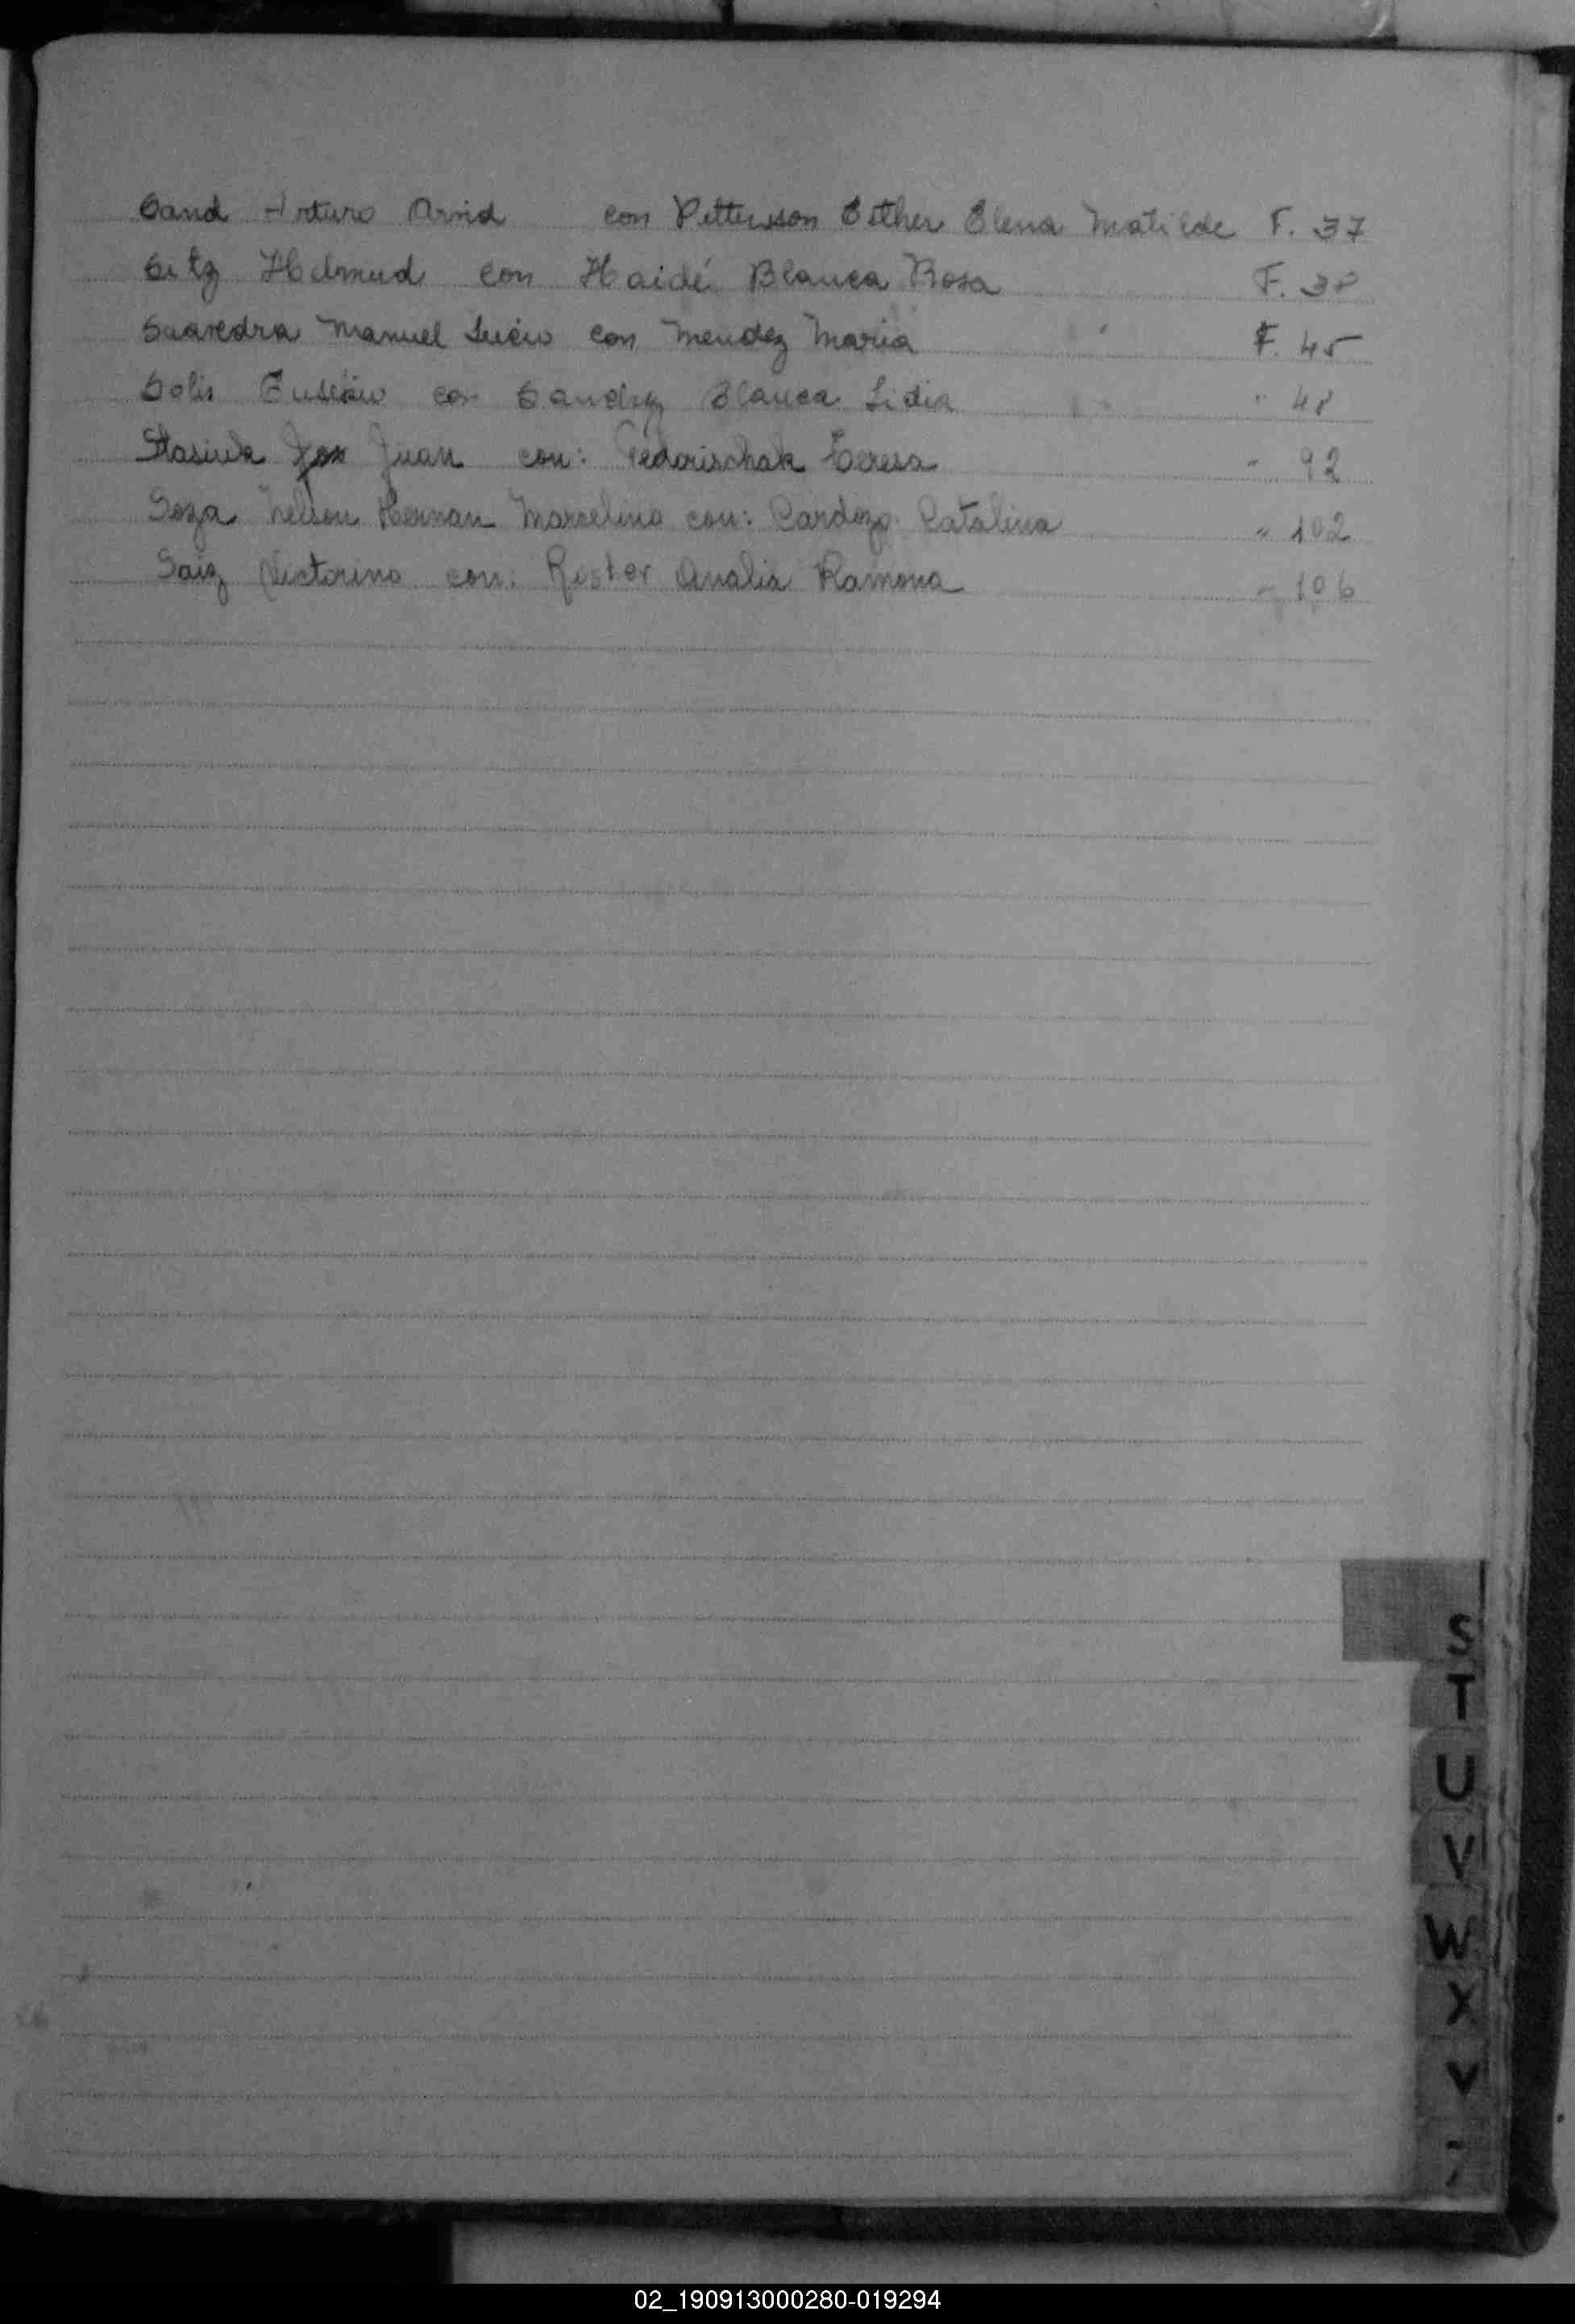 Sand Arturo Arvid con Pettersson Esther Elena Matilde F. 37
Seitz Helmud con Haidé Blanca Rosa F. 38
Saavedra Manuel Lucio con Mendez Maria F. 45
Solis Eusebio con Sandez Blanca Lidia " 48
Stasiuk Juan con: Fedorischak Teresa " 92
Soza Nelson Hernan Marcelino con: Cardozo Catalina " 102
Saiz Victorino con: Rister Analia Ramona " 106
S
T
U
V
W
X
02_190913000280-019294